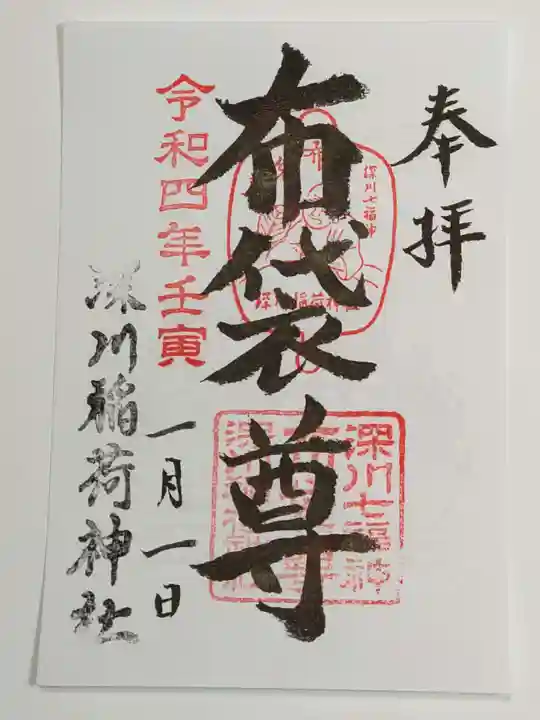 奉拝
布袋尊
深川七福神
深川稲荷神社
深川七福神
布袋尊
深川稲荷神社
令和四年壬寅
一月一日
深川稲荷神社